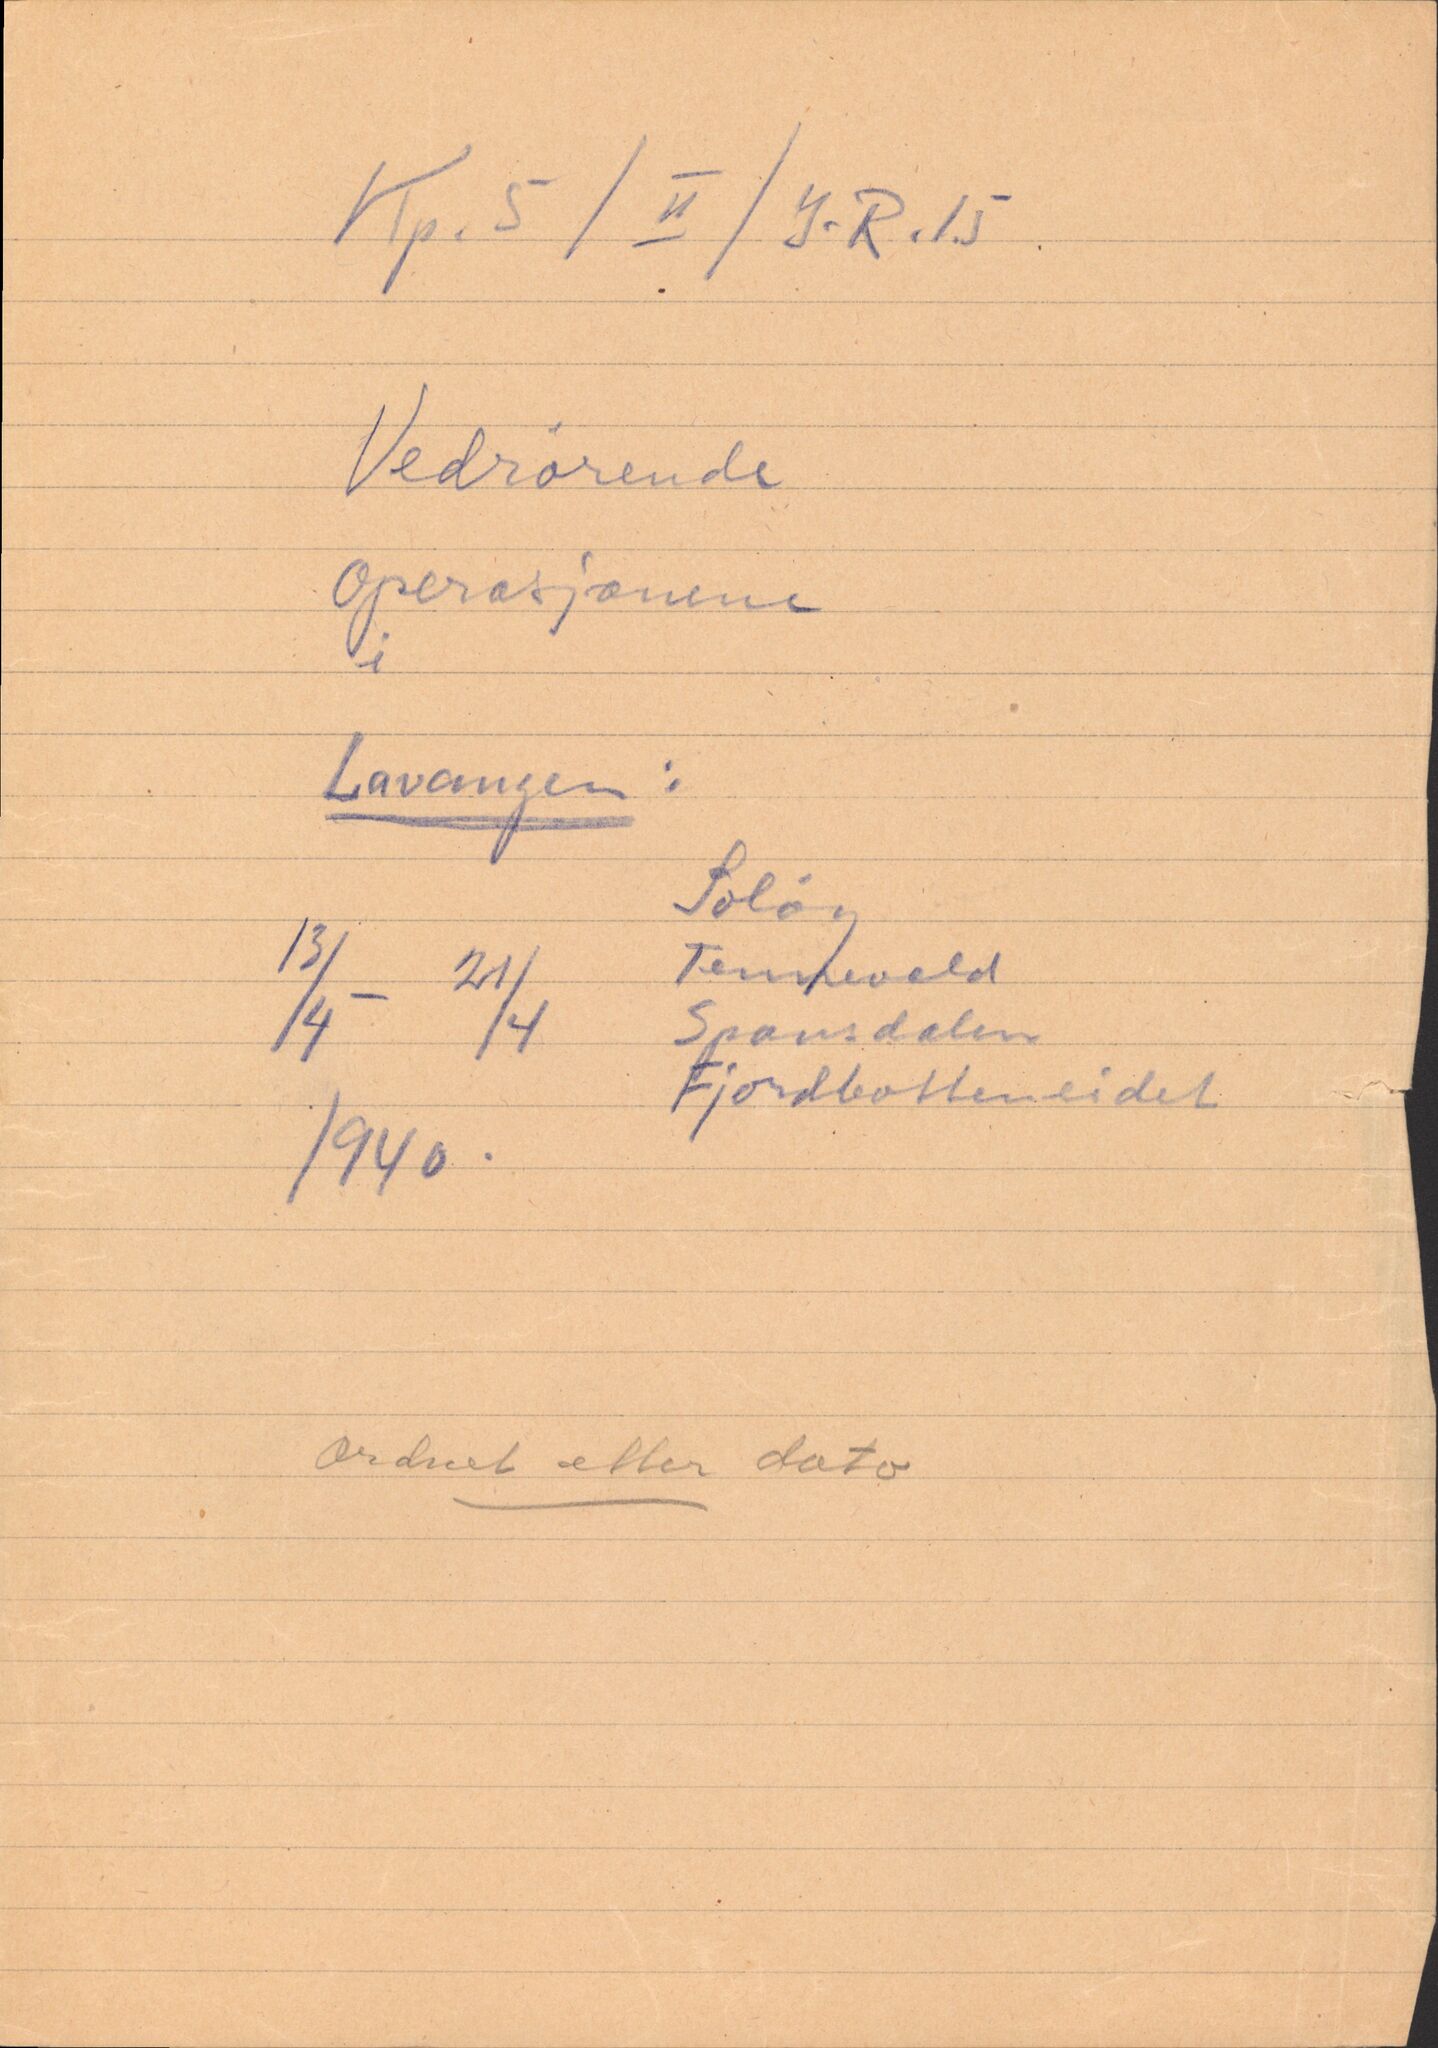 Kp. 5 / II / I.R. 15.
Vedrörende
operasjonene
i
Lavangen :
Solöy
13/4 – 21/4 Tennevold
Spansdalen
Fjordbotteneidet
1940.
ordnet etter dato